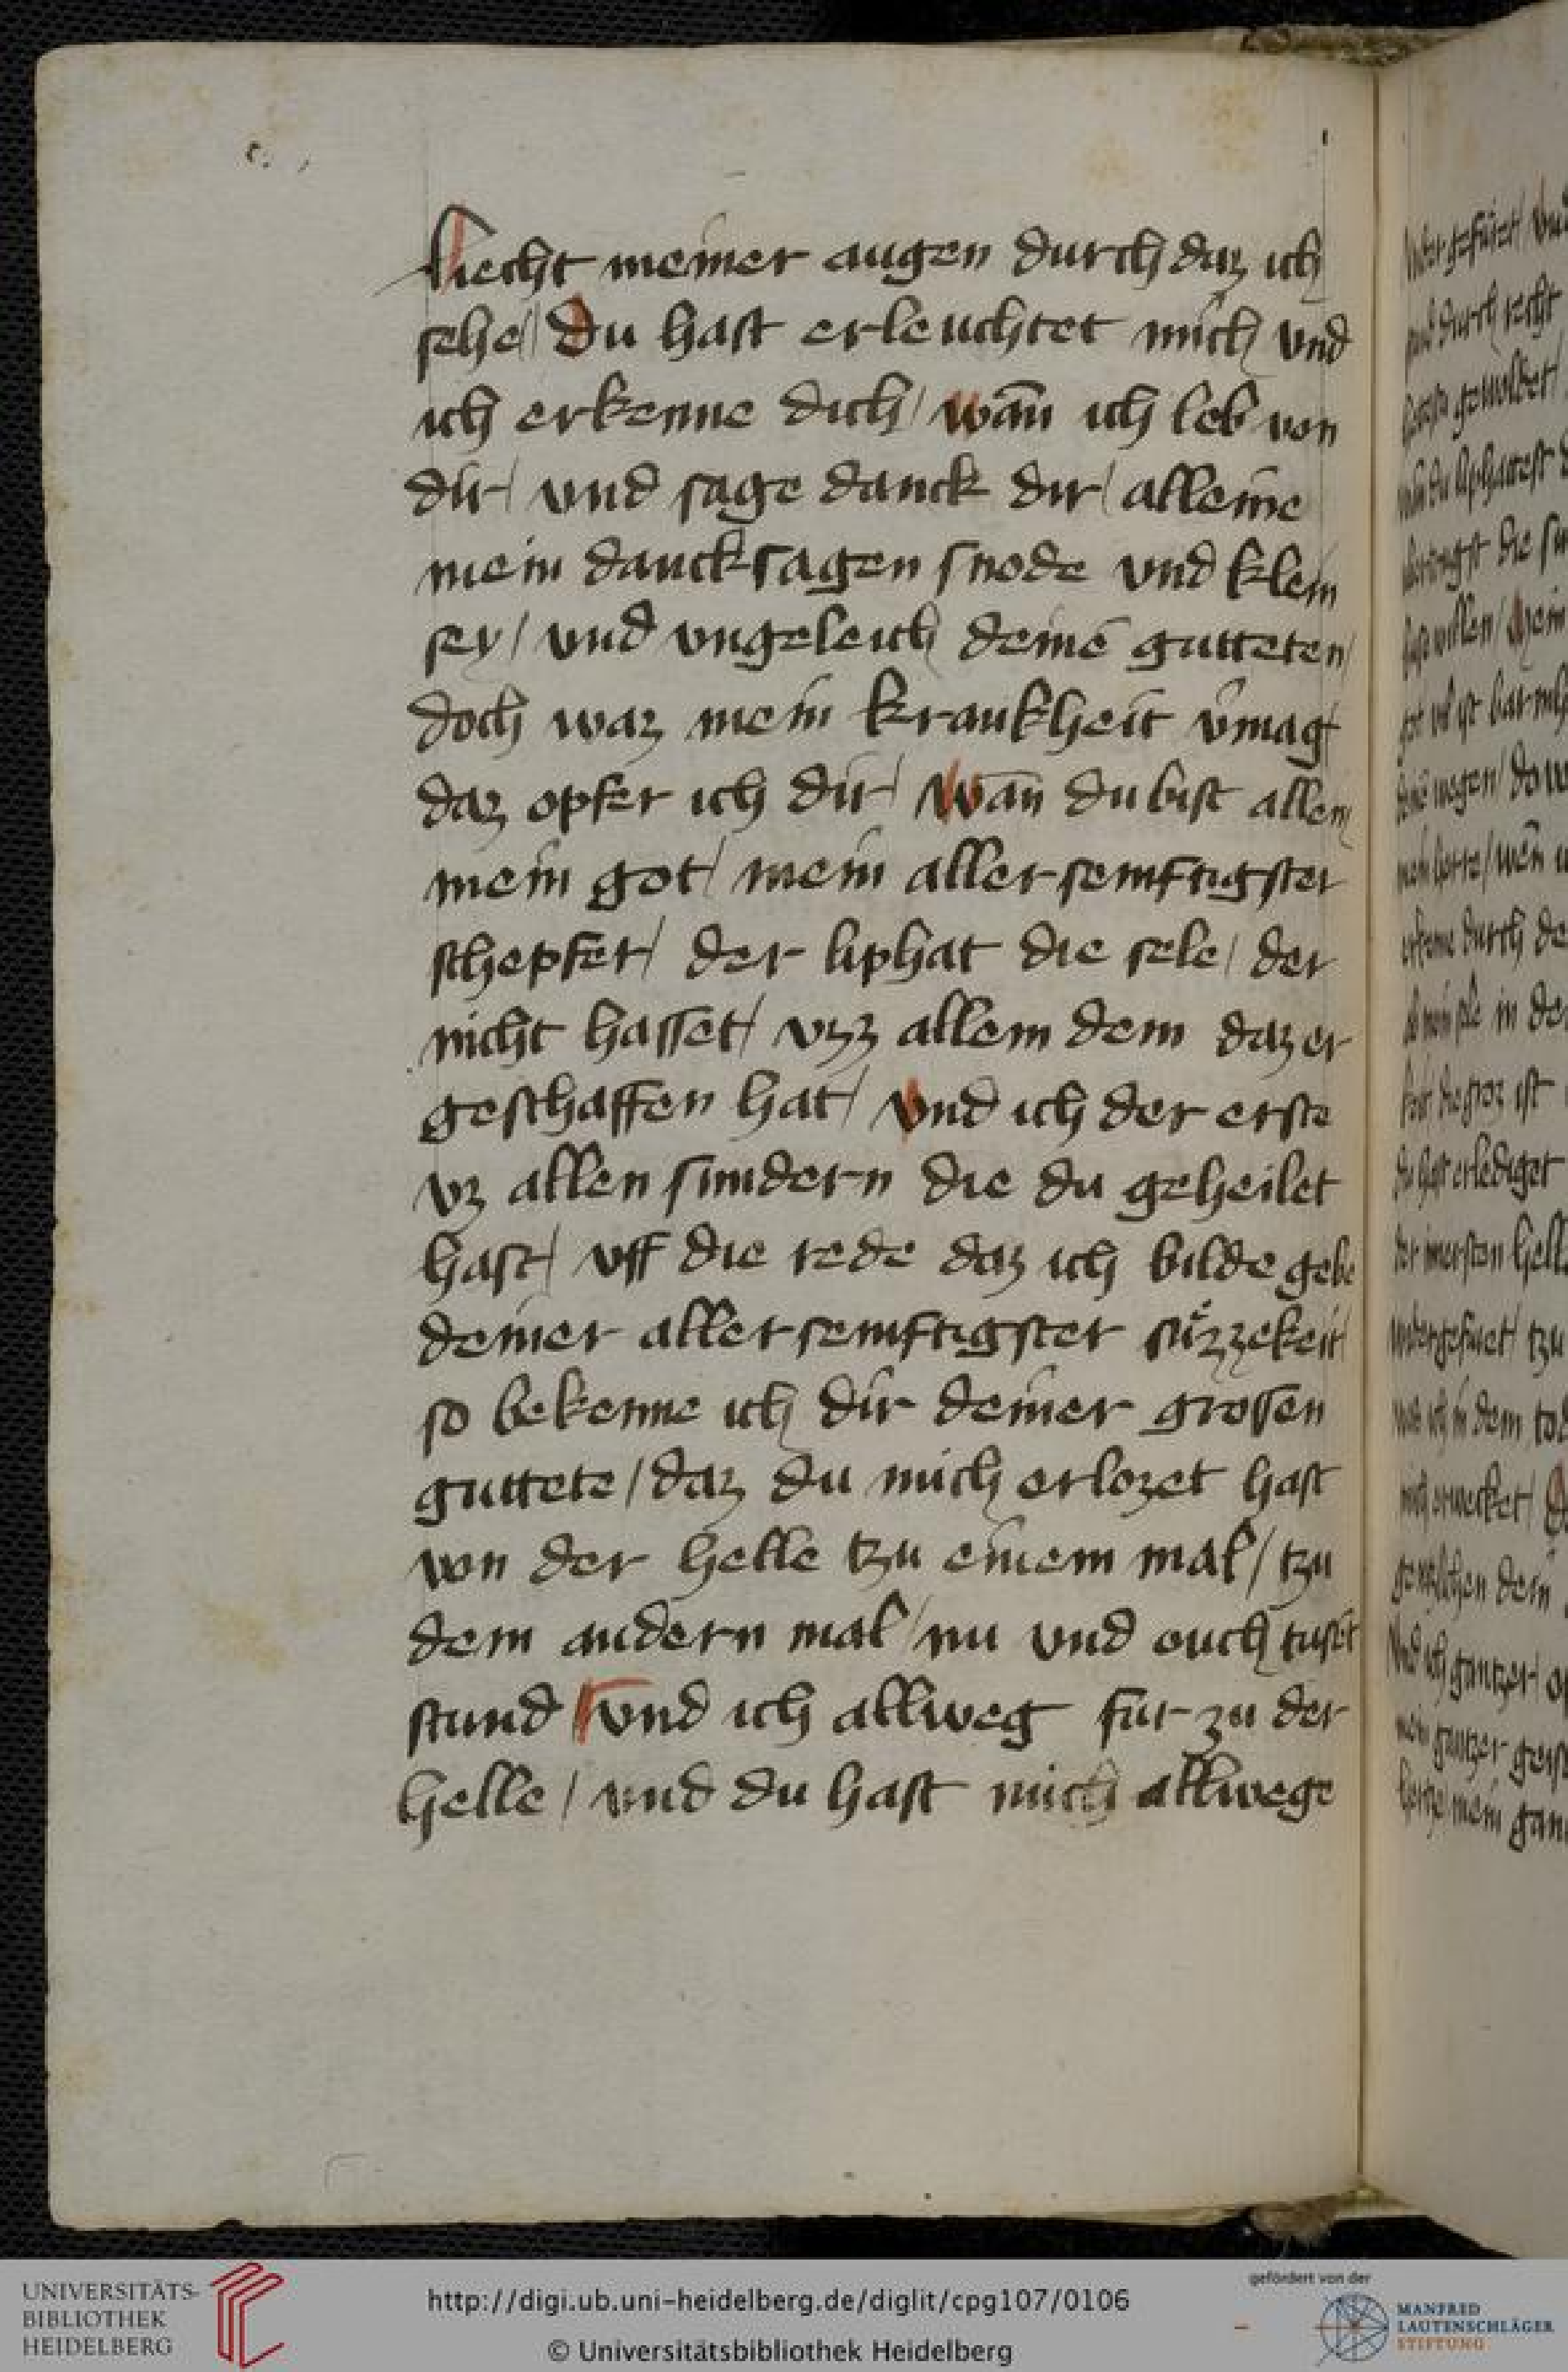 liecht meiner augen durch daz ich
sehe / Du hast erleuchtet mich vnd
ich erkenne dich / wān ich leb von
dir / vnd sage danck dir / alleine
mein dancksagen snode vnd klein
sey / vnd vngeleich deinē gutteten /
doch waz mein krankheit v̄mag
daz opfer ich dir / wān du bist allein
mein got / mein aller semftigster
schepfer / der liphat die sele / der
nicht hasset / vzz allem dem daz er
geschaffen hat / vnd ich der erste
vz allen sundern die du geheilet
hast / vff die rede daz ich bilde gebe
deiner aller semftigster sůzzekeit /
so bekenne ich dir deiner grossen
guttete / daz du mich erlozet hast
von der helle tzu einem mal / tzu
dem andern mal / nu vnd ouch tusēt
stund / vnd ich allweg fur zu der
helle / vnd du hast mich allwege
UNIVERSITÄTS-
BIBLIOTHEK
HEIDELBERG
http://digi.ub.uni-heidelberg.de/diglit/cpg107/0106
© Universitätsbibliothek Heidelberg
gefördert von der
MANFRED
LAUTENSCHLÄGER
STIFTUNG